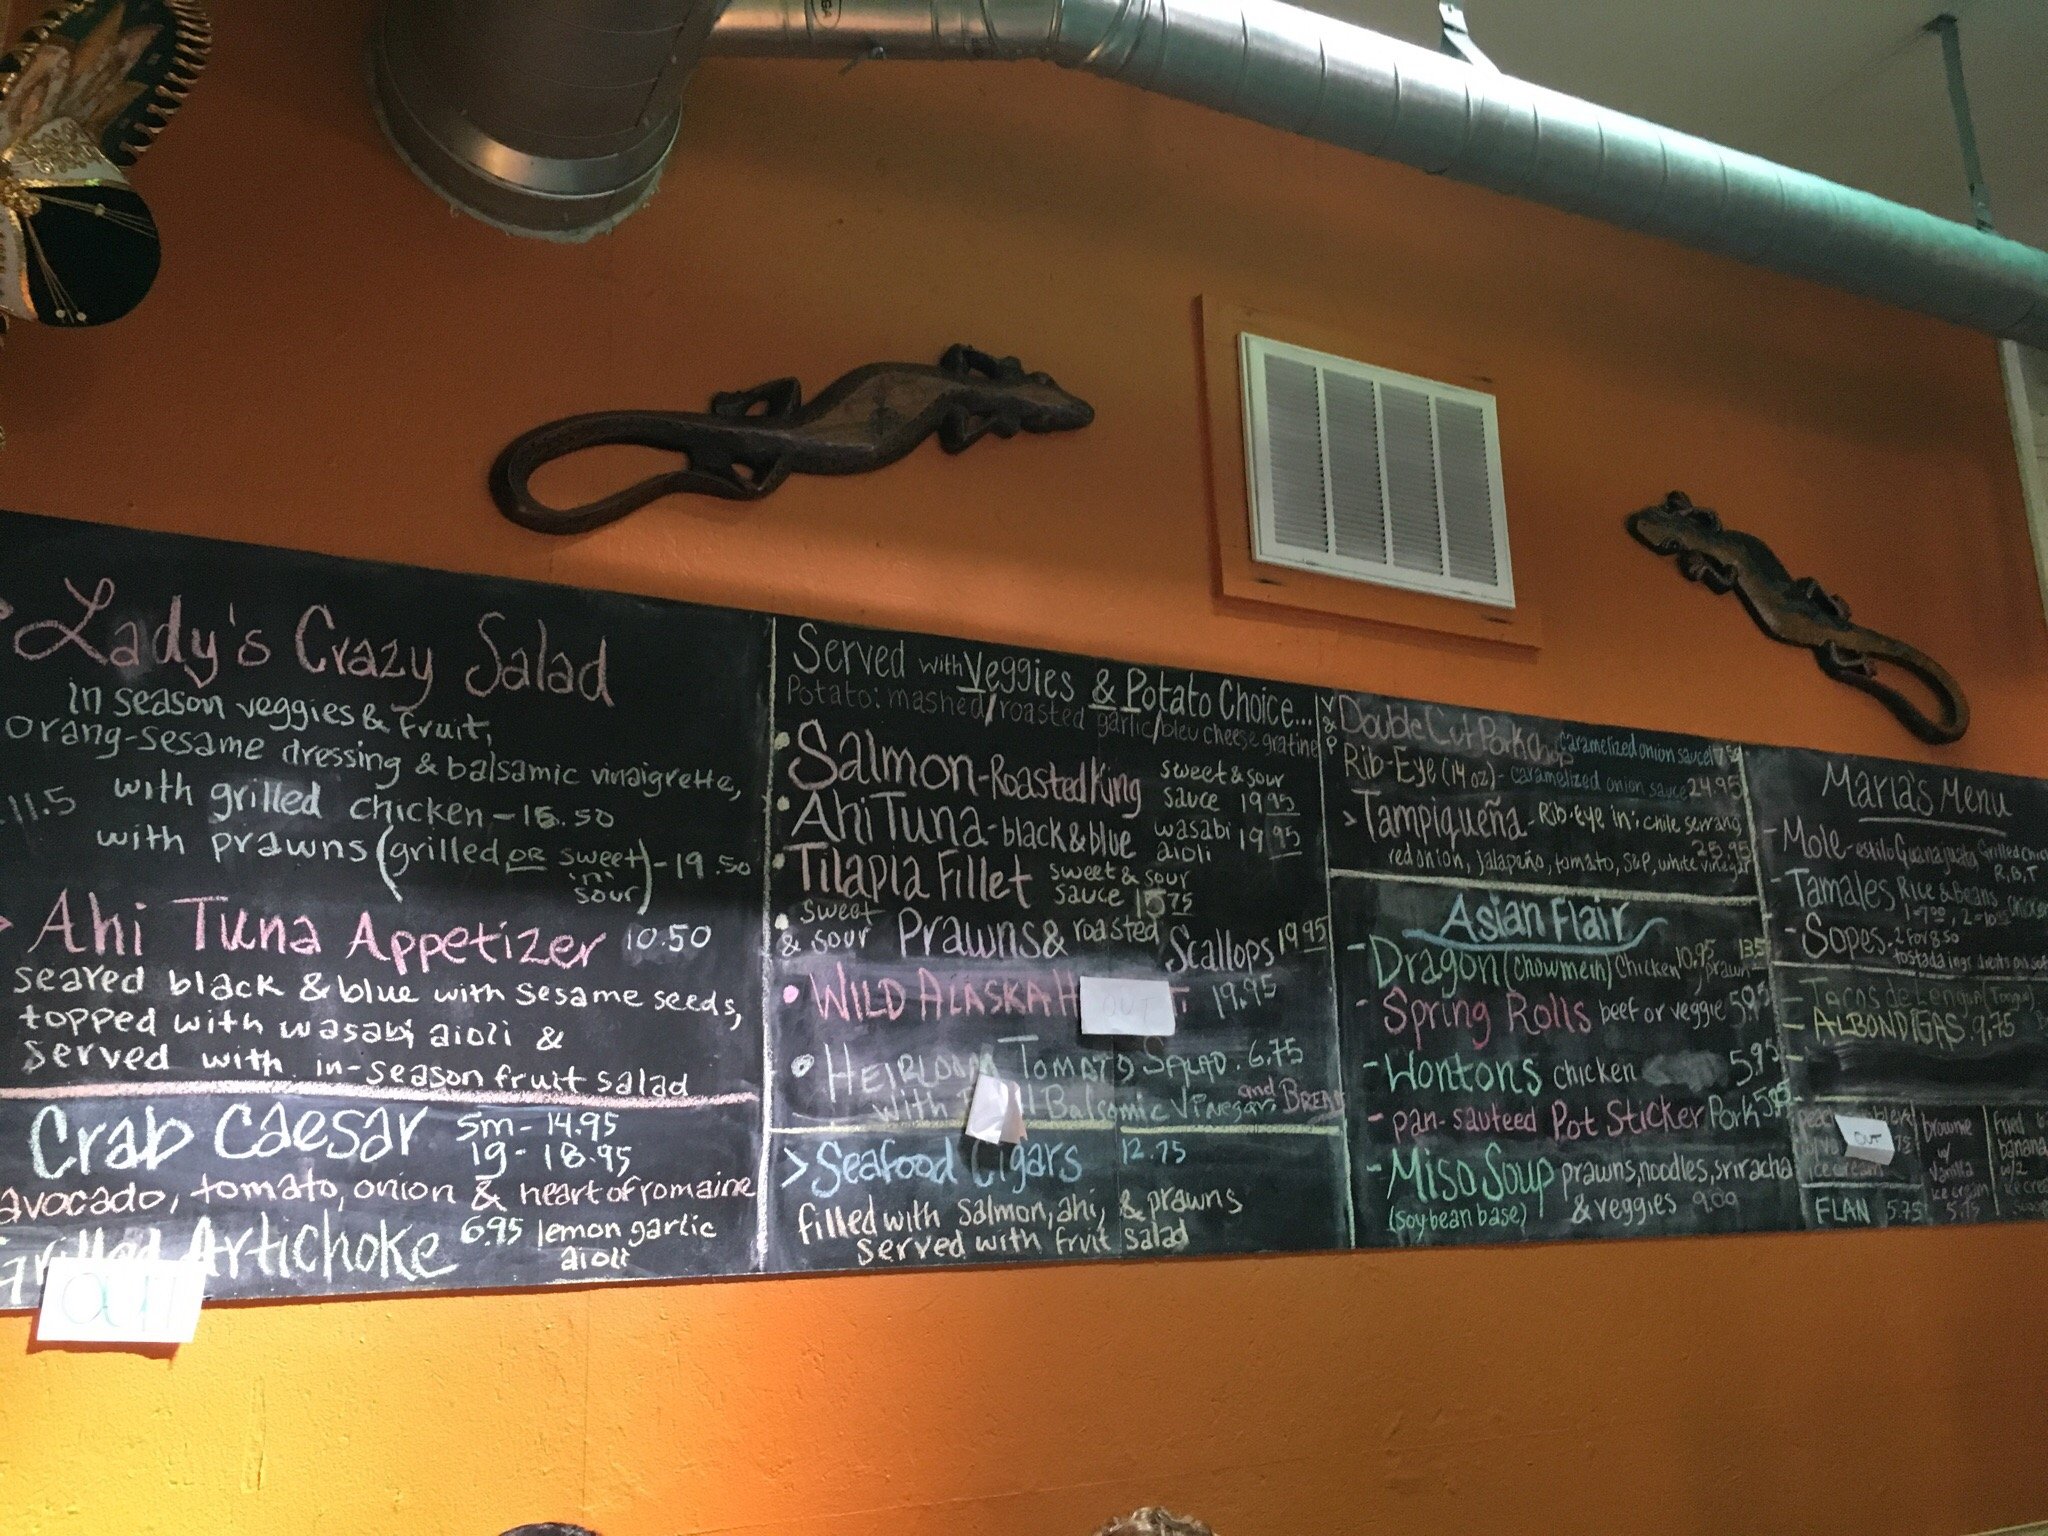 Lady's Crazy Salad
in season veggies & fruit,
orang-sesame dressing & balsamic vinaigrette,
11.5 with grilled chicken - 15.50
with prawns (grilled OR sweet 'n' sour) - 19.50
Ahi Tuna Appetizer 10.50
seared black & blue with sesame seeds,
topped with wasabi aioli &
served with in-season fruit salad
Crab Caesar sm - 14.95
lg - 18.95
avocado, tomato, onion & heart of romaine
Grilled Artichoke 6.95 lemon garlic
aioli
OUT
Served with Veggies & Potato Choice...
Potato: mashed/roasted garlic/bleu cheese gratine
Salmon - Roasted King sweet & sour
sauce 19.95
Ahi Tuna - black & blue wasabi 19.95
aioli
Tilapia Fillet sweet & sour
sauce 15.75
sweet
& sour Prawns & roasted Scallops 19.95
WILD ALASKA H OUT T 19.95
HEIRLOOM TOMATO SALAD. 6.75
with Balsamic Vinegar and BREAD
> Seafood Cigars 12.75
filled with salmon, ahi, & prawns
served with fruit salad
V & P
Double Cut Pork Chop caramelized onion sauce
Rib-Eye (14 oz) - caramelized onion sauce 24.95
> Tampiqueña - Rib-Eye in: chile serrano,
25.95
red onion, jalapeño, tomato, S&P, white vinegar
Asian Flair
- Dragon (chowmein) chicken 10.95 prawn
- Spring Rolls beef or veggie 5.95
- Wontons chicken 5.95
- pan-sauteed Pot Sticker Pork 5.95
- Miso Soup prawns, noodles, sriracha
(soybean base) & veggies 9.00
Maria's Menu
- Mole - estilo Guanajuato Grilled Chic
R, B, T
- Tamales Rice & Beans chicken
- Sopes. 2 for 8.50
tostada ings
- Tacos de Lengua (Tongue)
- ALBONDIGAS 9.75
OUT
ice cream
FLAN 5.75
brownie
w/
vanilla
ice cream
5.75
fried
banana
w/
ice cre